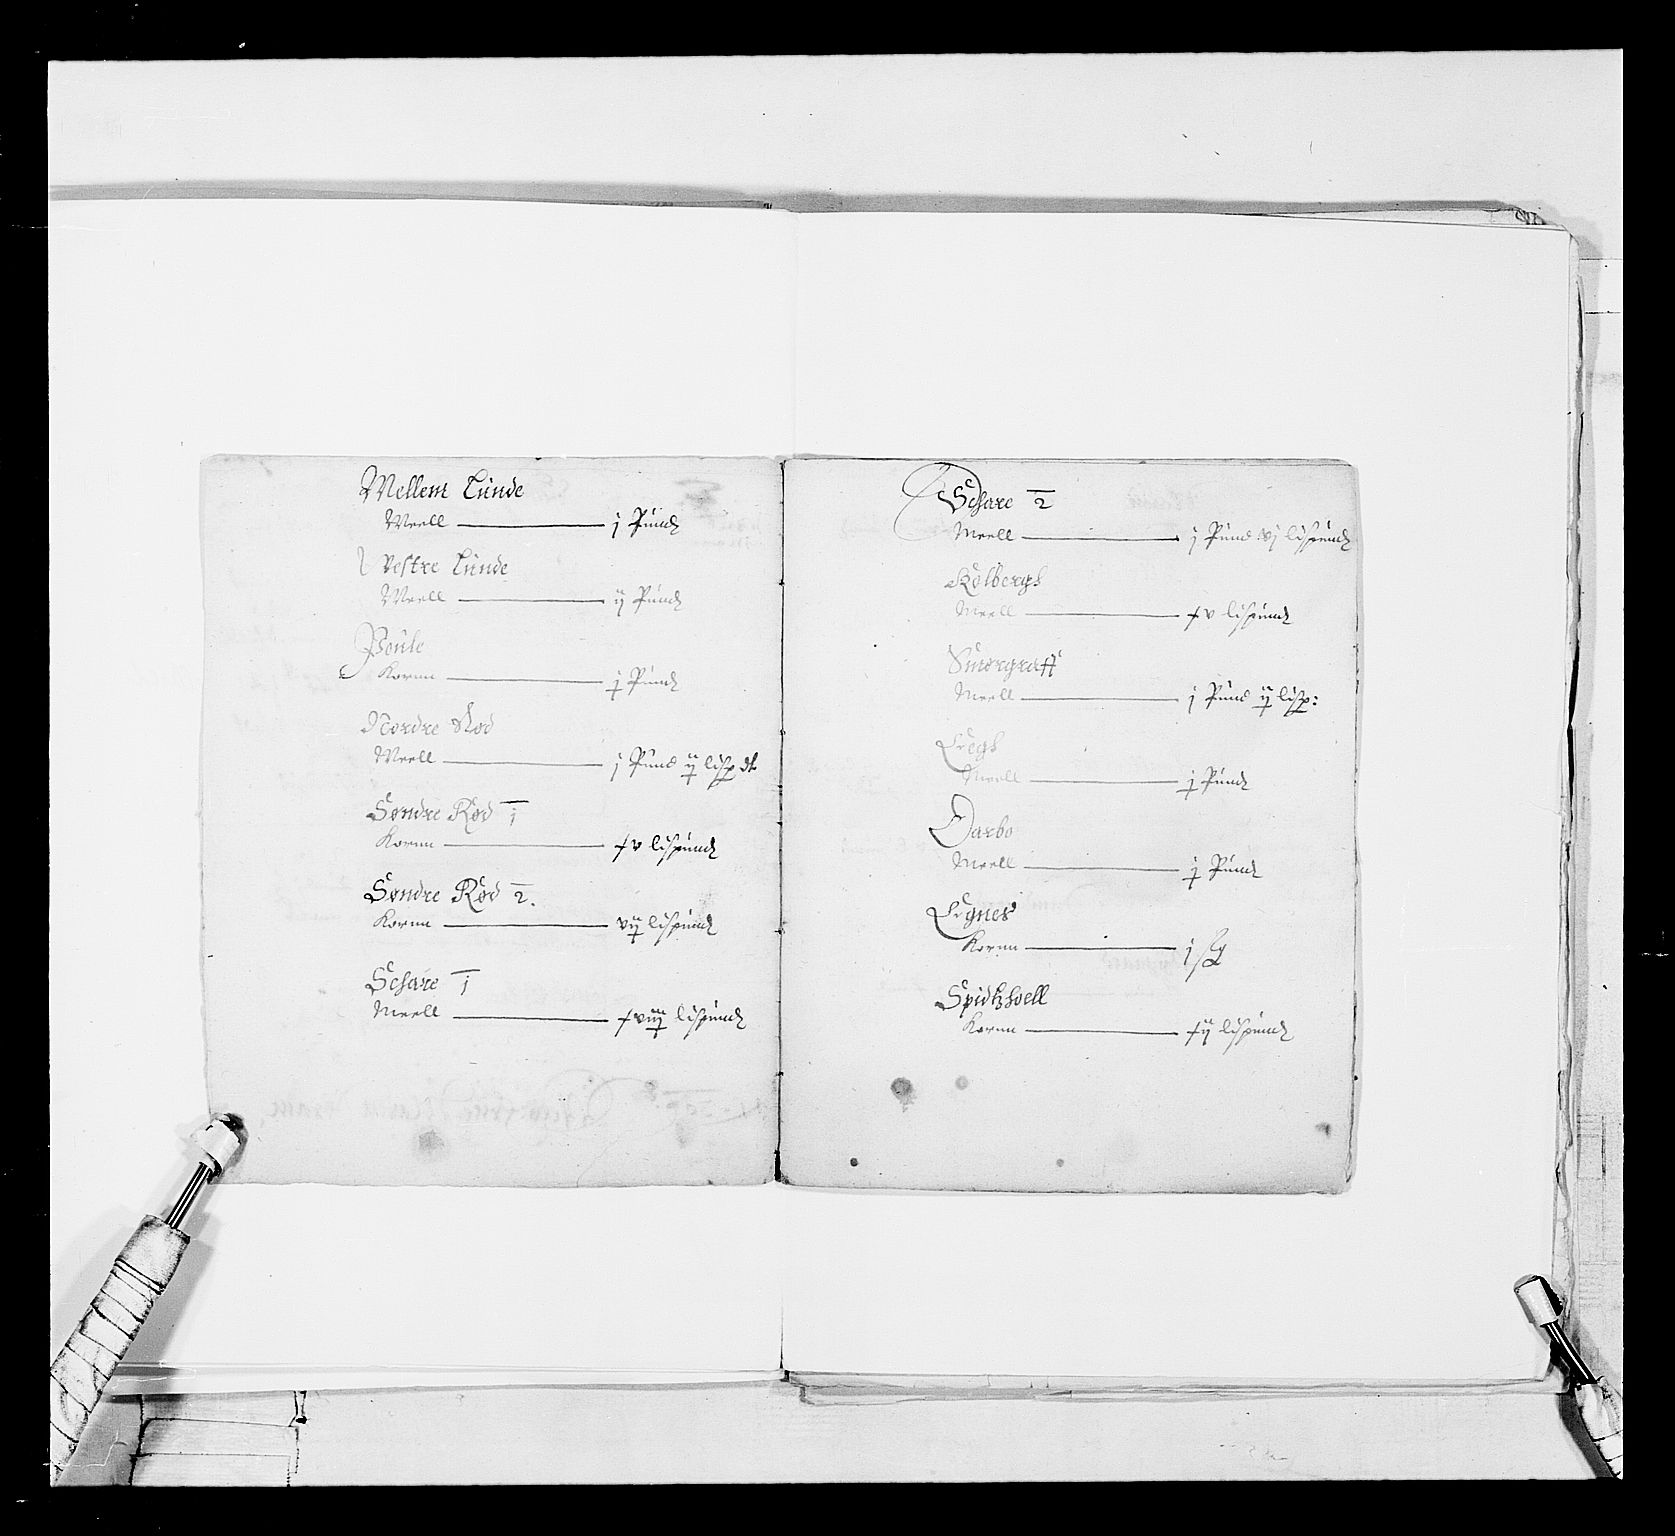 Mellem Lunde
Meell — j Pund
Vestre Lunde
Meell — ij Pund
Kornn — j Pund
Nordre Rød
Meell — j Pund ij lisp
Søndre Rød 1
Kornn — v lispund
Søndre Rød 2.
Kornn — vij lispund
Schare 1
Meell — viiij lispund
Schare 2
Meell — j Pund vj lispund
Kolbergs
Meell — v lispund
Smørgraff
Meell — j Pund ij lisp:
Meell — j Pund
Darbo
Meell — j Pund
Egnes
Kornn — j
Spidtholl
Kornn — ij lispund